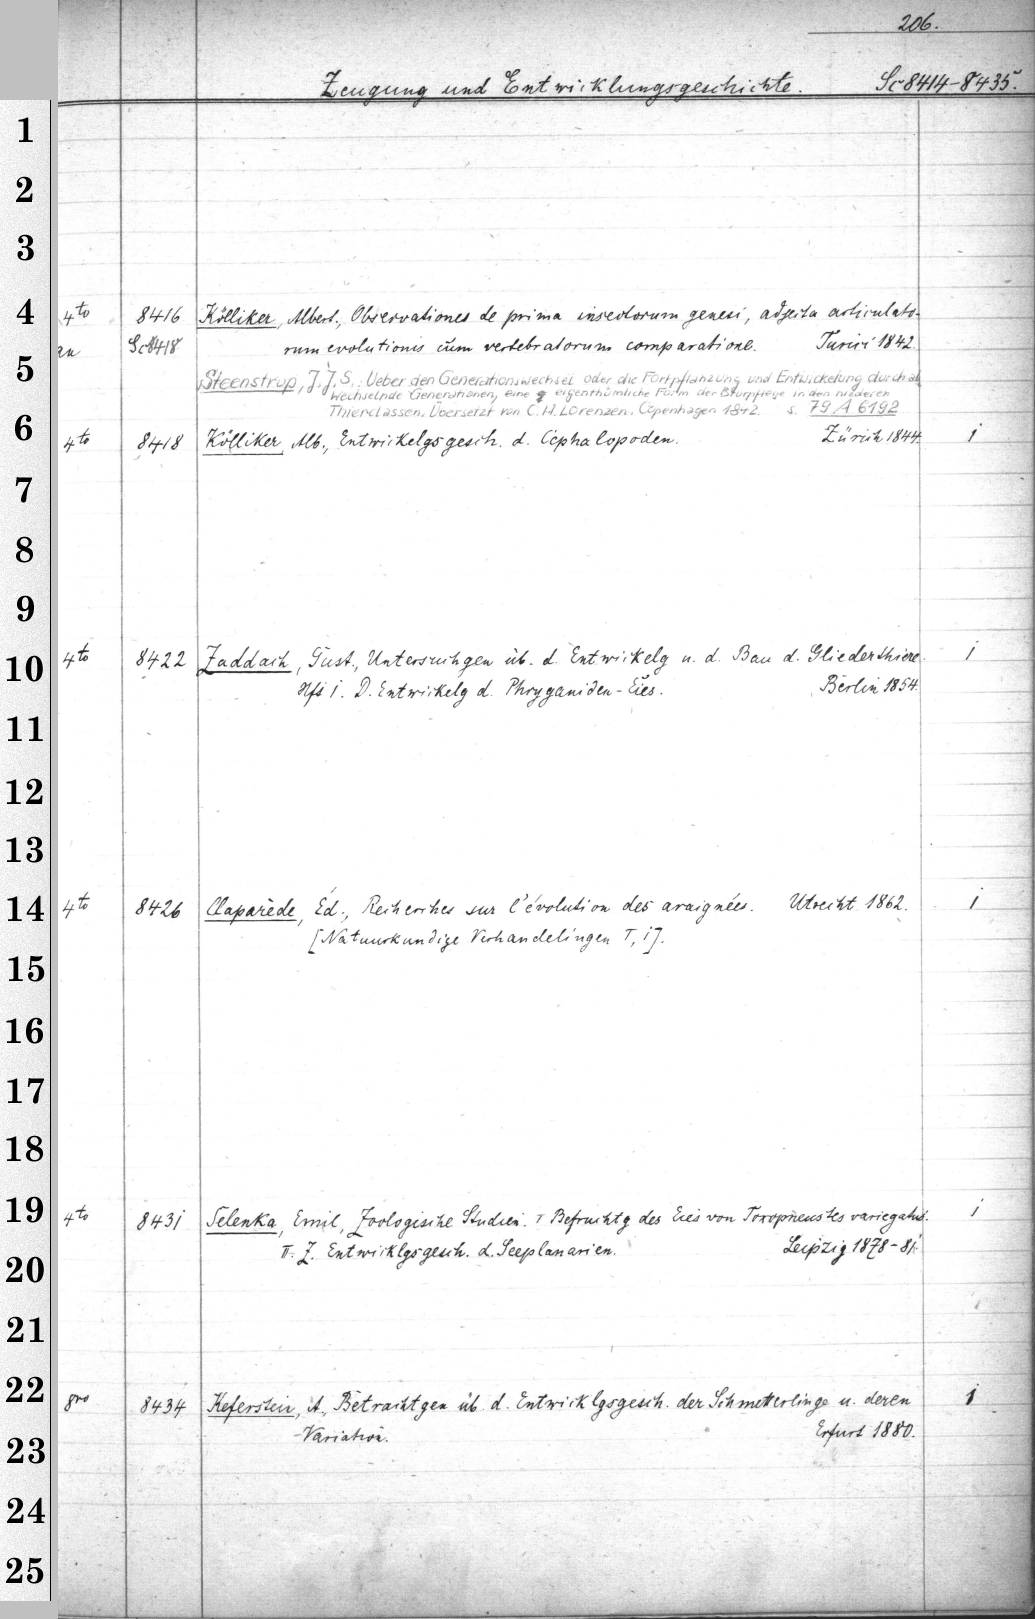 206.
Zeugung und Entwicklungsgeschichte. Sc 8414-8435.
1
2
3
4 4to 8416 Kölliker, Albert., Observationes de prima insectorum genesi, adjecta articulato-
an Sc 8418 rum evolutionis cum vertebratorum comparatione. Turici 1842.
5 Steenstrup, J. J. S.: Ueber den Generationswechsel oder die Fortpflanzung und Entwickelung durch ab
wechselnde Generationen, eine eigenthümliche Form der Brutpflege in den niederen
Thierclassen. Übersetzt von C. H. Lorenzen. Copenhagen 1842. s. 79 A 6192
6 4to 8418 Kölliker, Alb., Entwickelgsgesch. d. Cephalopoden. Zürich 1844. 1
7
8
9
10 4to 8422 Zaddach, Gust., Untersuchgen üb. d. Entwickelg u. d. Bau d. Gliederthiere. 1
Hft 1. D. Entwickelg d. Phryganiden-Eies. Berlin 1854.
11
12
13
14 4to 8426 Claparède, Éd., Recherches sur l'évolution des araignées. Utrecht 1862. 1
[Natuurkundige Verhandelingen I, 1].
15
16
17
18
19 4to 8431 Selenka, Emil, Zoologische Studien. I Befruchtg des Eies von Toxopneustes variegatus. 1
II. Z. Entwicklgsgesch. d. Seeplanarien. Leipzig 1878-81.
20
21
22 8vo 8434 Keferstein, A., Betrachtgen üb. d. Entwicklgsgesch. der Schmetterlinge u. deren 1
Variation. Erfurt 1880.
23
24
25